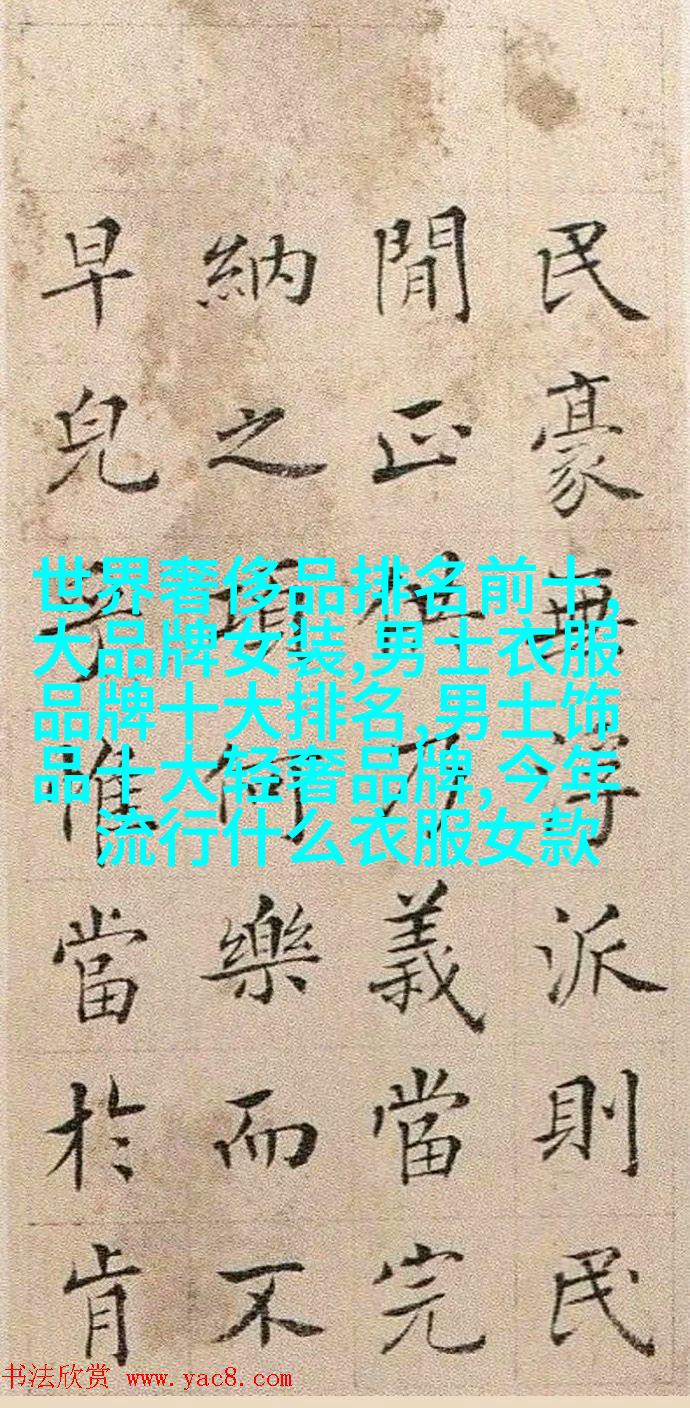 民豪無浮派則民
閒正供乃義當完
納之項何樂而不
早兒惟當於肯
世界奢侈品排名前十,
大品牌女装,男士衣服
品牌十大排名,男士饰
品十大轻奢品牌,今年
流行什么衣服女款
书法欣赏 www.yac8.com